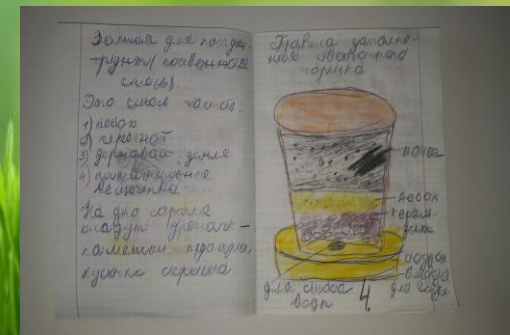 Земля для посадки
грунт/ почвенная
смесь.
Это смесь
1) песок
2) перегной
3) дерновая земля
4) питательные
вещества
На дно горшка
кладут дренаж -
камешки,
кусочки
Правила заполне-
ния цветочного
горшка
почва
песок
керам-
зит
поддон
для воды
для стока
воды
4.